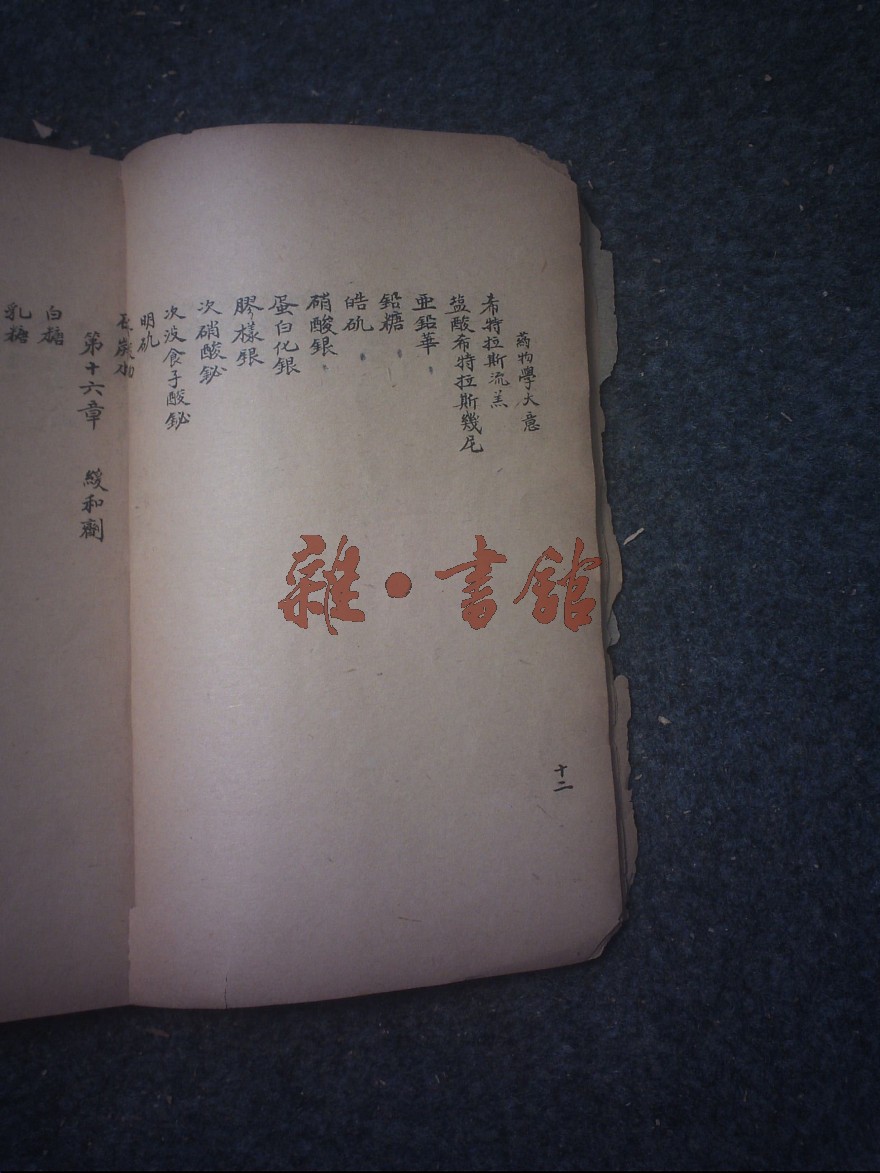 藥物學大意
希特拉斯流羔
塩酸希特拉斯幾尼
亜鉛華
鉛糖
皓矾
硝酸銀
蛋白化銀
膠様銀
次硝酸鉍
次没食子酸鉍
明矾
第十六章 緩和劑
白糖
乳糖
十二
雜·書館